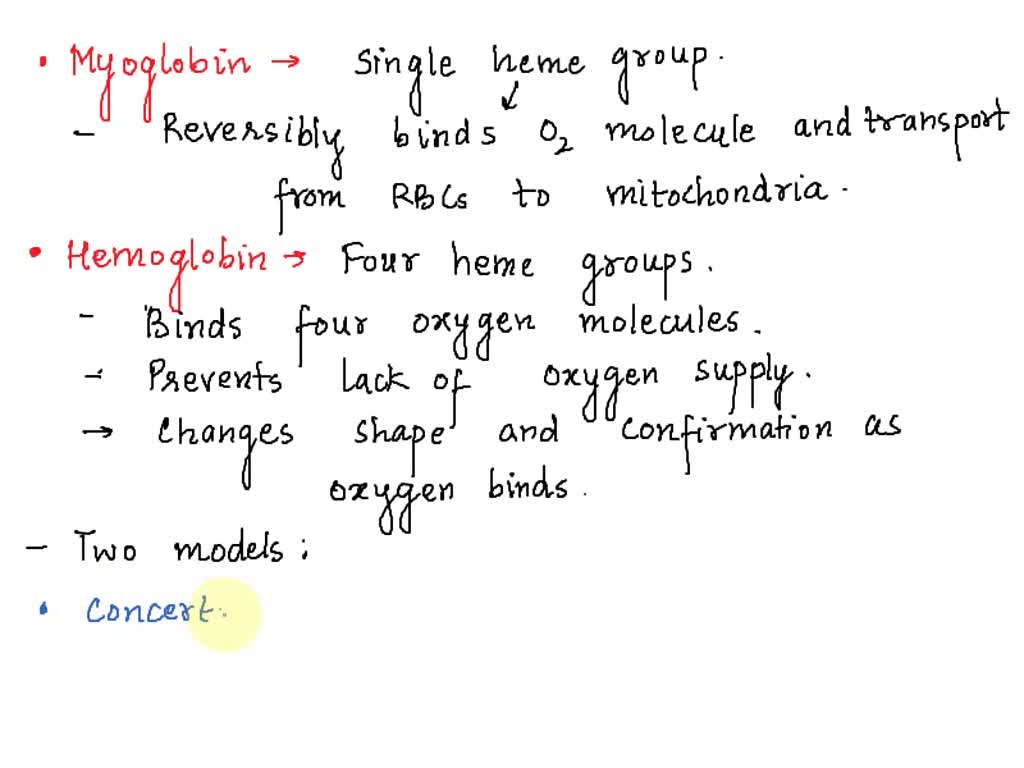 • Myoglobin → Single heme group.
- Reversibly binds O₂ molecule and transport
from RBCs to mitochondria.
• Hemoglobin → Four heme groups.
- Binds four oxygen molecules.
- Prevents lack of oxygen supply.
→ Changes shape and confirmation as
oxygen binds.
- Two models:
• Concert.